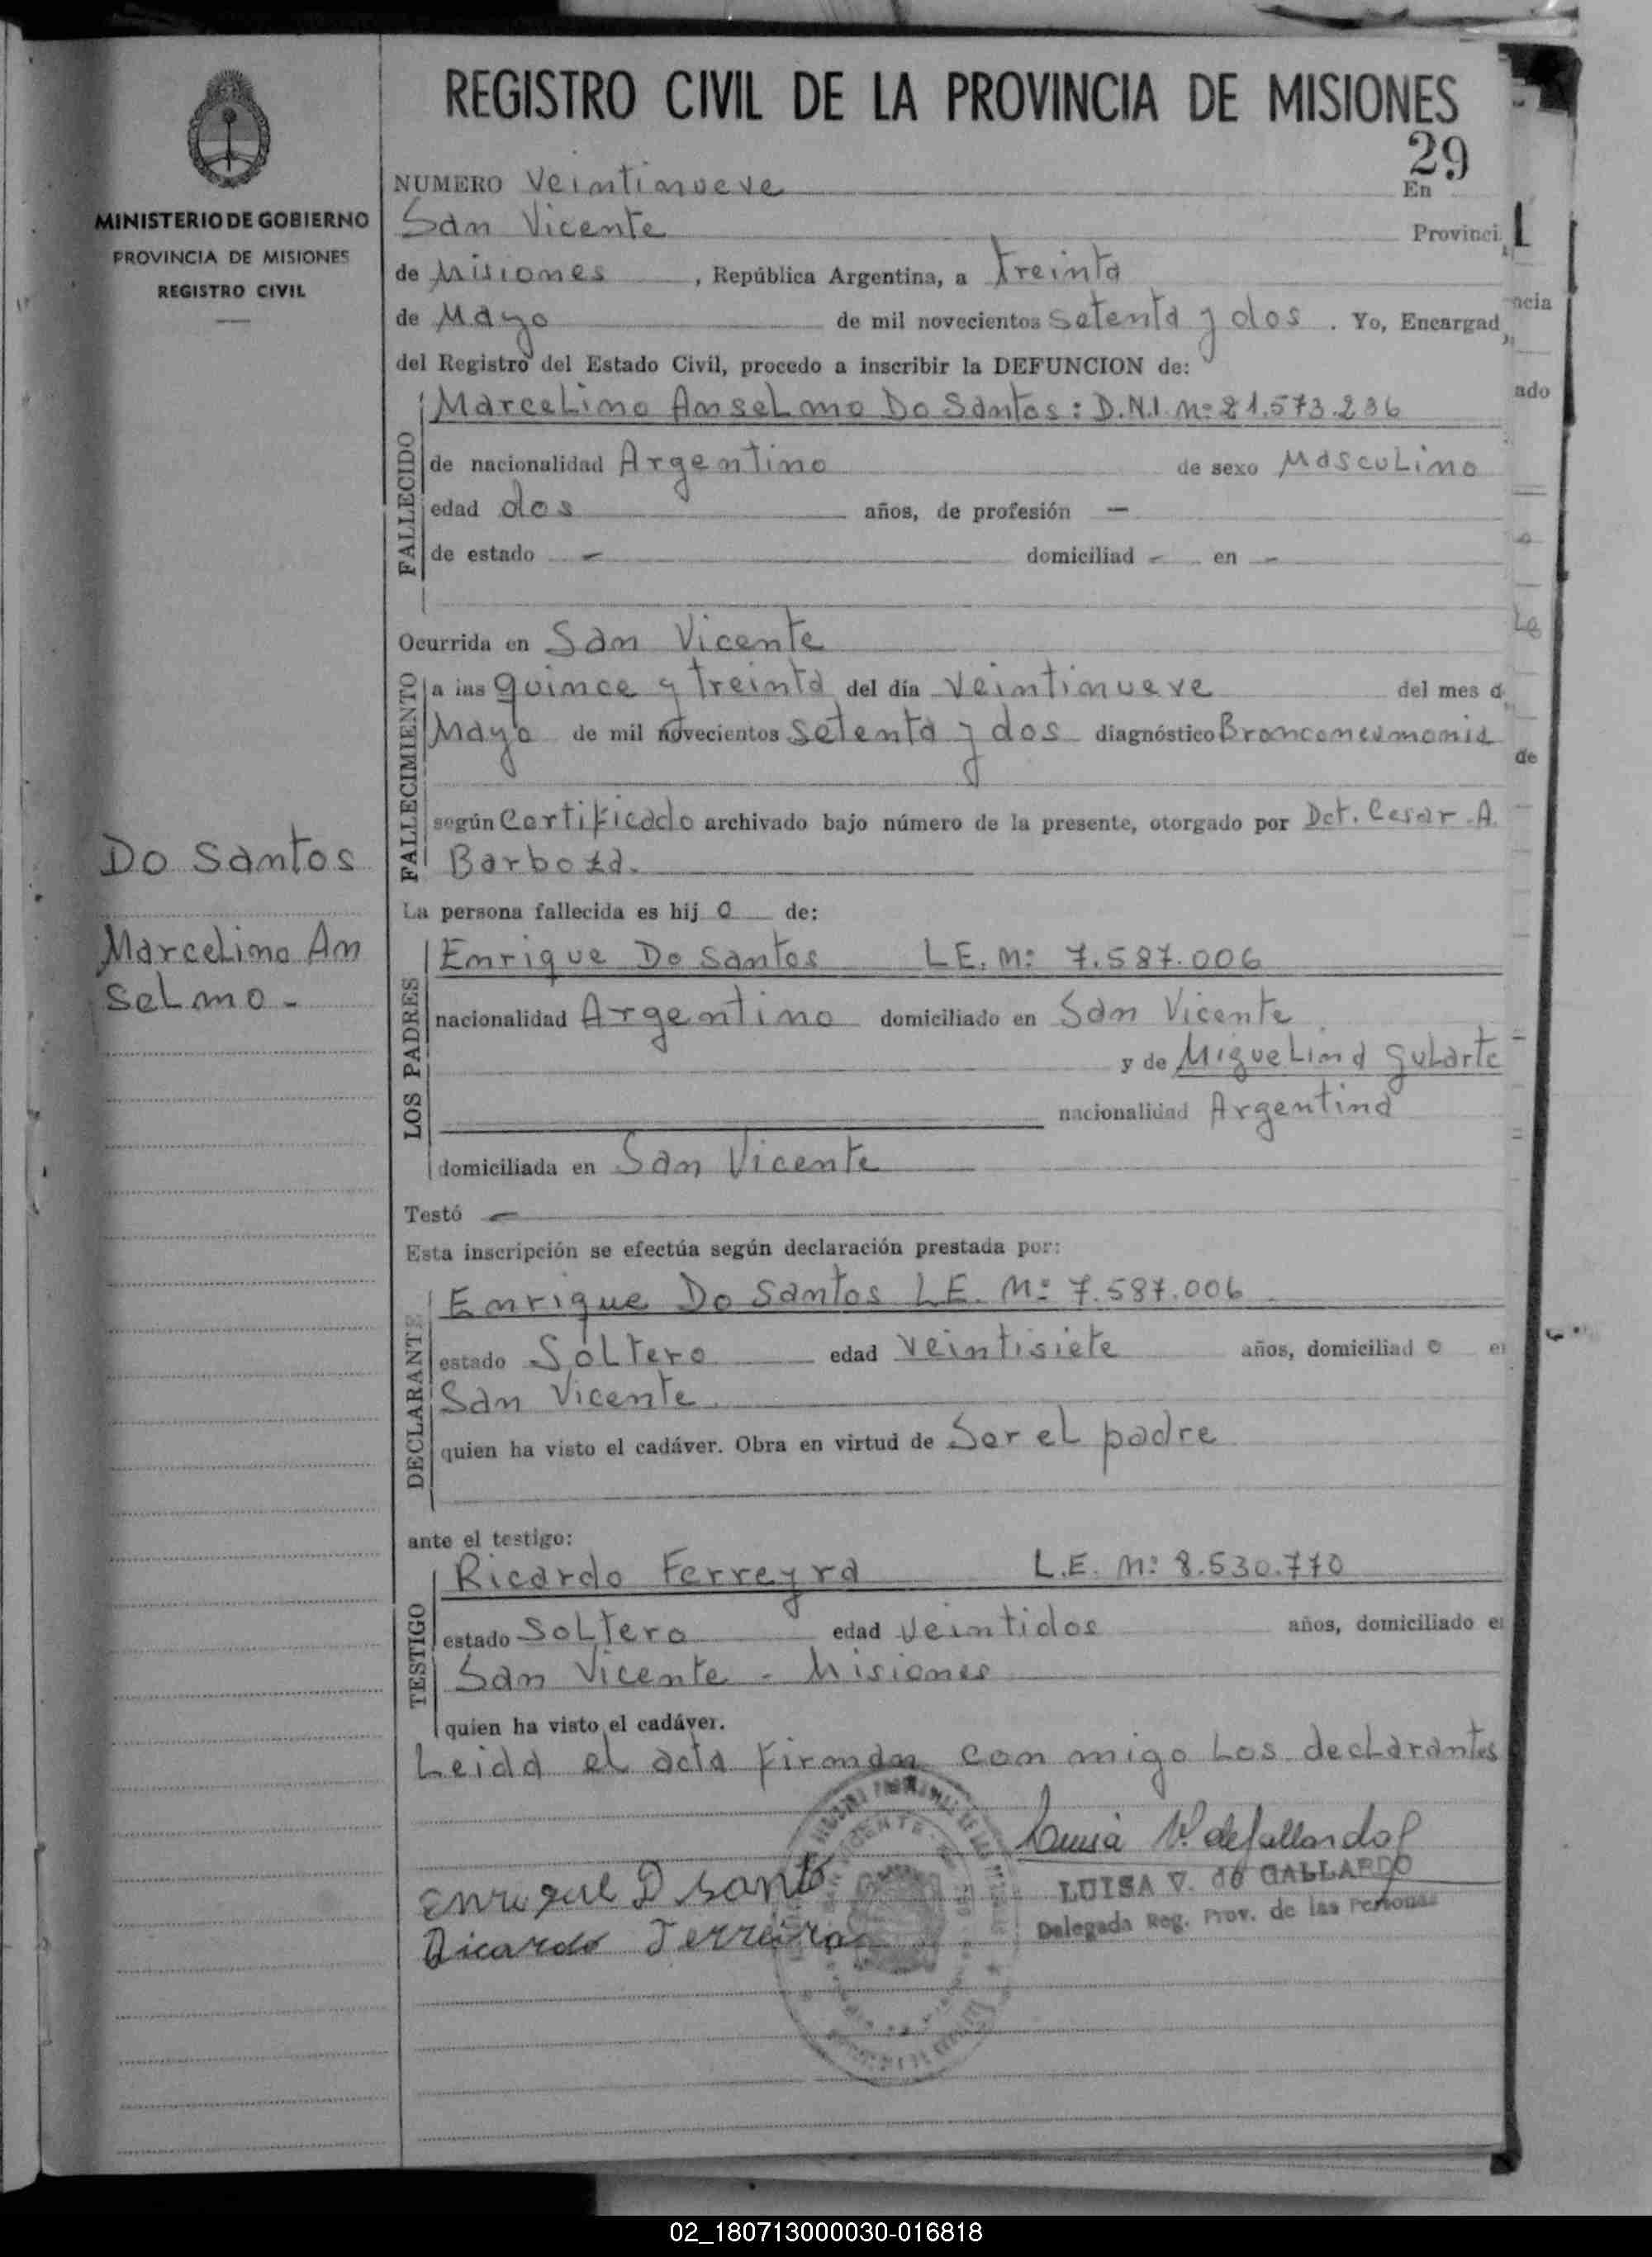 REGISTRO CIVIL DE LA PROVINCIA DE MISIONES
29
MINISTERIO DE GOBIERNO
PROVINCIA DE MISIONES
REGISTRO CIVIL
NUMERO Veintinueve En
San Vicente Provinci
de Misiones , República Argentina, a treinta
de Mayo de mil novecientos setenta y dos . Yo, Encargad
del Registro del Estado Civil, procedo a inscribir la DEFUNCION de:
FALLECIDO
Marcelino Anselmo Do Santos: D.N.I. Nº 21.573.236
de nacionalidad Argentino de sexo Masculino
edad dos años, de profesión —
de estado — domiciliad - en -
Ocurrida en San Vicente
FALLECIMIENTO
a las quince y treinta del día veintinueve del mes d
Mayo de mil novecientos setenta y dos diagnóstico Bronconeumonia
según Certificado archivado bajo número de la presente, otorgado por Dct. Cesar A.
Barboza.
Do Santos
Marcelino An
selmo -
La persona fallecida es hij o de:
LOS PADRES
Enrique Do Santos L.E. Nº 7.587.006
nacionalidad Argentino domiciliado en San Vicente
y de Miguelina Gularte
nacionalidad Argentina
domiciliada en San Vicente
Testó —
Esta inscripción se efectúa según declaración prestada por:
DECLARANTE
Enrique Do Santos L.E. Nº 7.587.006
estado Soltero edad veintisiete años, domiciliad o e
San Vicente
quien ha visto el cadáver. Obra en virtud de Ser el padre
ante el testigo:
TESTIGO
Ricardo Ferreyra L.E. Nº 8.530.770
estado Soltero edad veintidos años, domiciliado e
San Vicente - Misiones
quien ha visto el cadáver.
Leida el acta firman con migo Los declarantes
Enrique D santo
Ricardo Ferreira
LUISA V. de GALLARDO
Delegada Reg. Prov. de las Personas
ncia
ado
Le
de
02_180713000030-016818